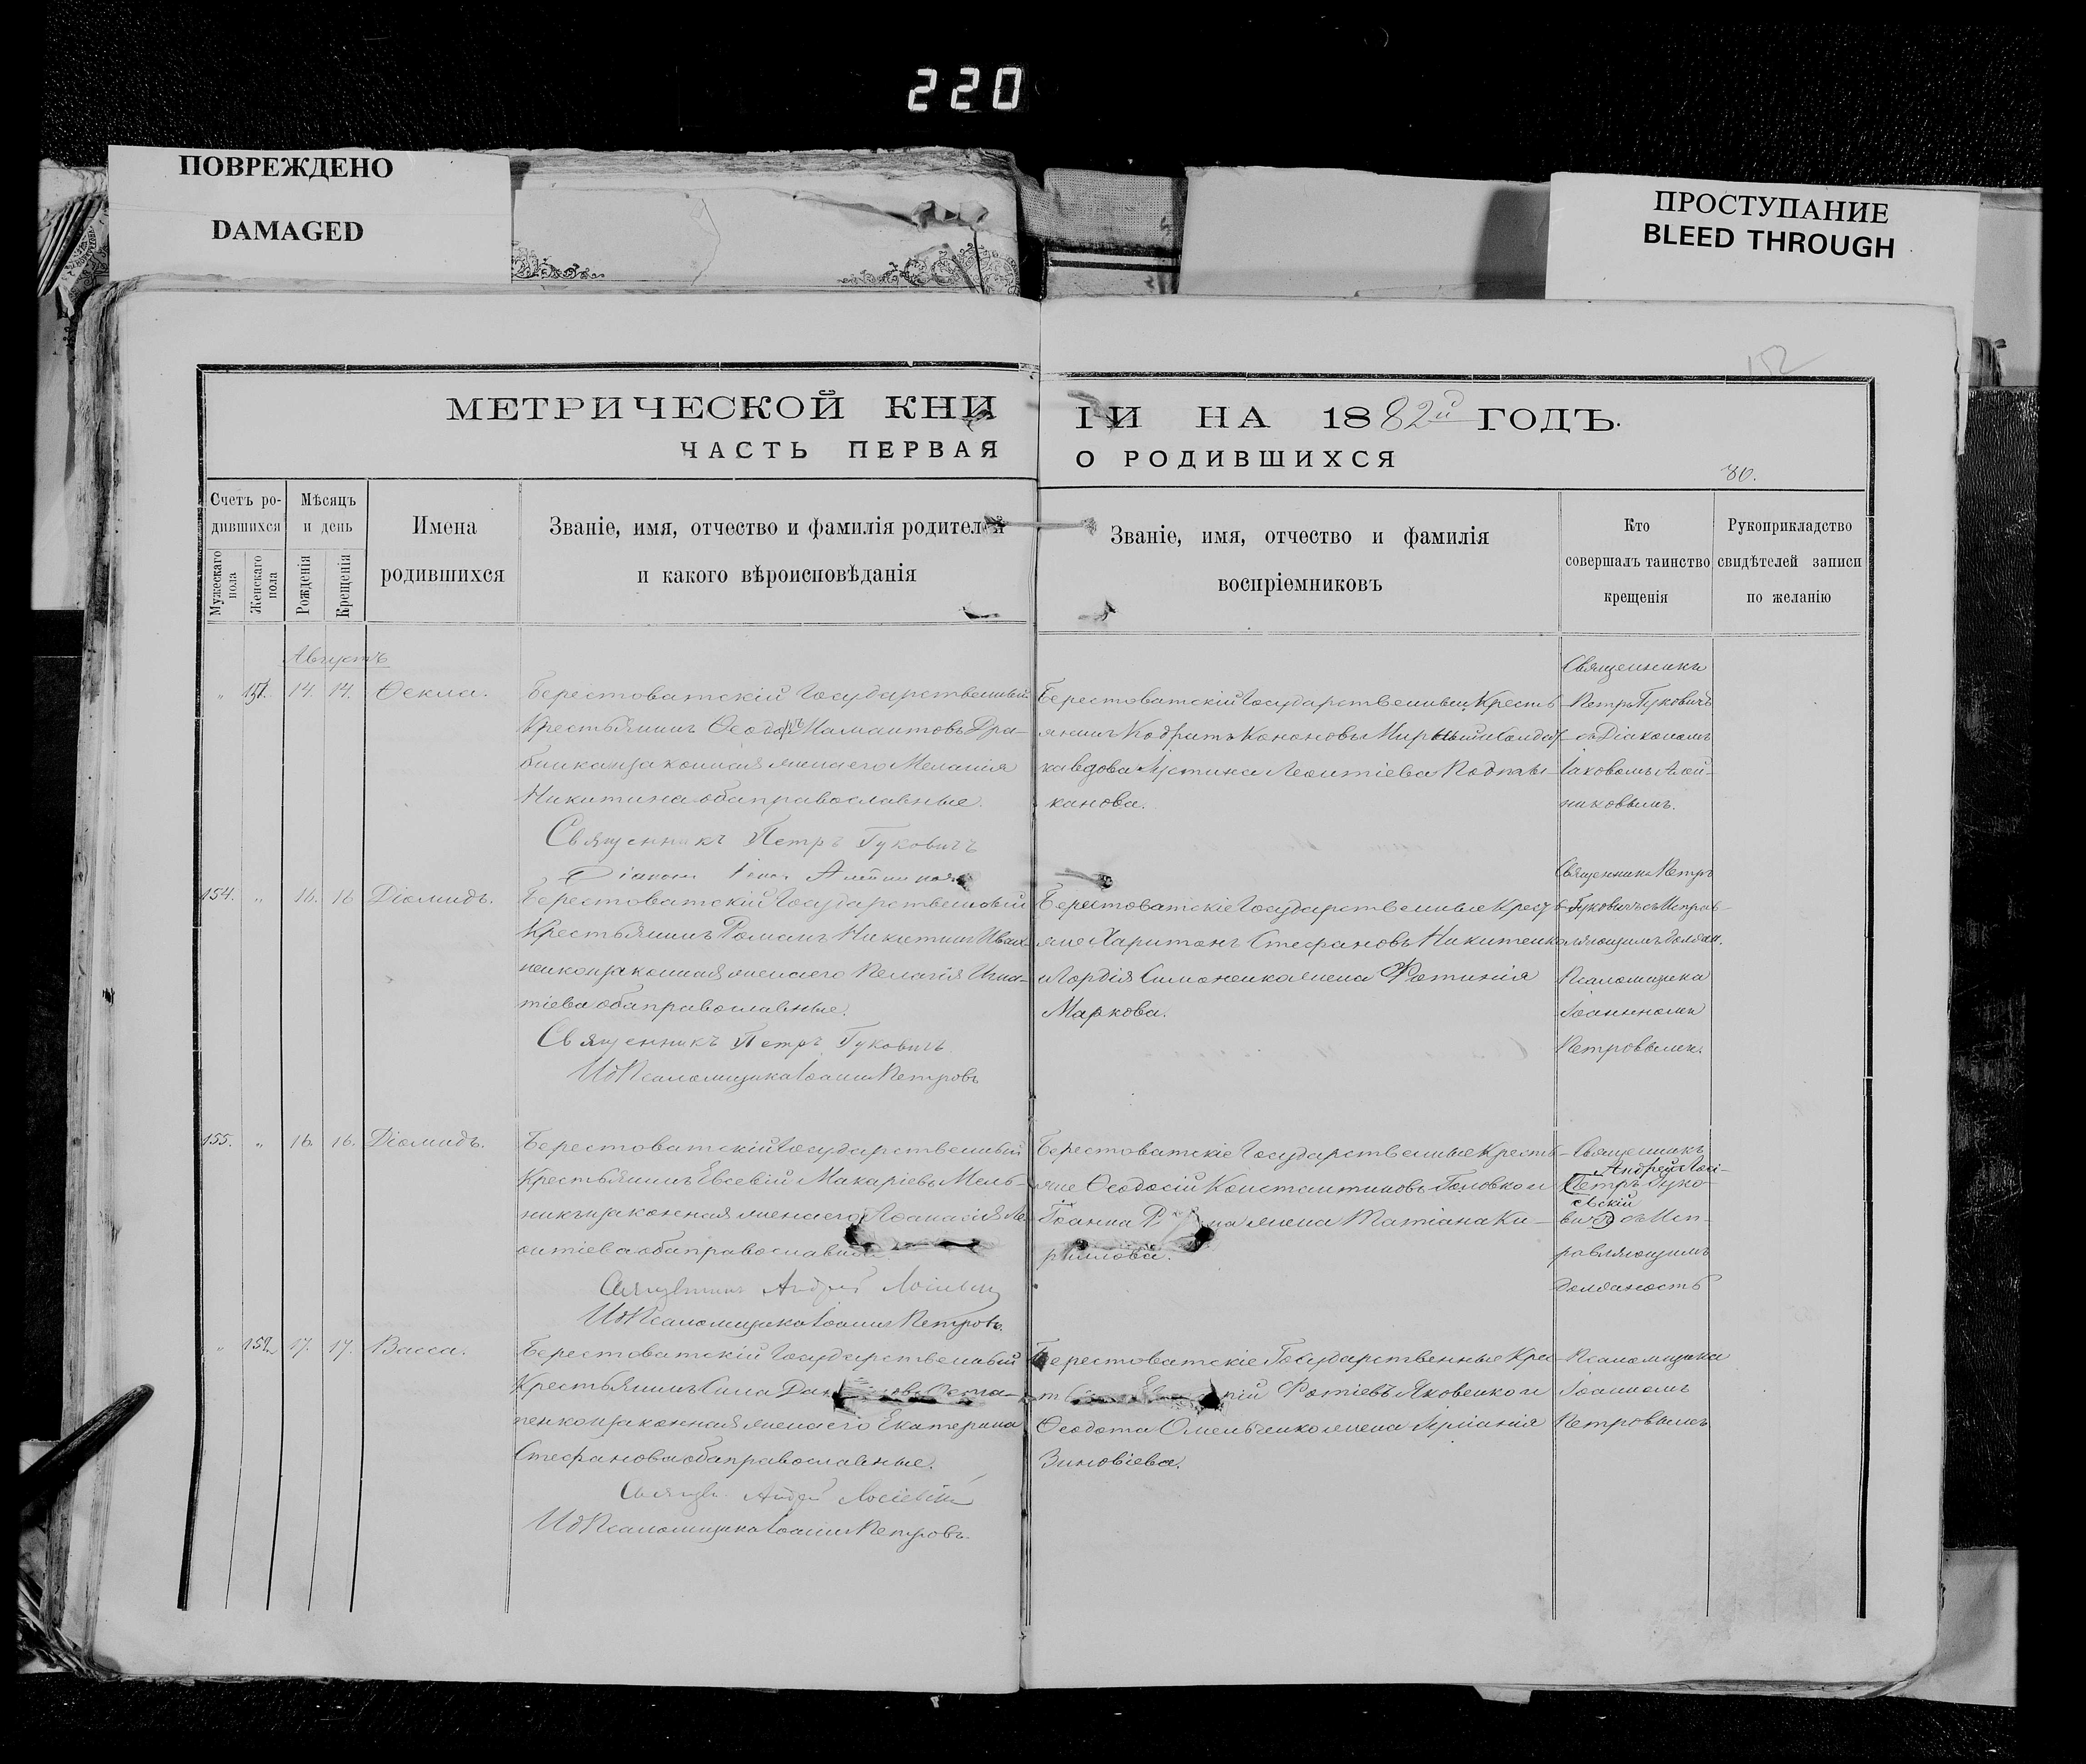 220
ПОВРЕЖДЕНО
DAMAGED
ПРОСТУПАНИЕ
BLEED THROUGH
152
МЕТРИЧЕСКОЙ КНИ ГИ НА 1882й ГОДЪ.
ЧАСТЬ ПЕРВАЯ О РОДИВШИХСЯ
80.
Счетъ ро-
дившихся
Мужескаго пола
Женскаго пола
Мѣсяцъ
и день
Рожденія
Крещенія
Имена
родившихся
Званіе, имя, отчество и фамилія родителей
и какого вѣроисповѣданія
Званіе, имя, отчество и фамилія
воспріемниковъ
Кто
совершалъ таинство
крещенія
Рукоприкладство
свидѣтелей записи
по желанію
Августъ
" 151. 14. 14. Ѳекла.
Берестоватскій Государственный
Крестьянинъ Мамантовъ Дра-
законная жена его Меланія
Никитина оба православные.
Священникъ Петръ Гуковичъ
Діаконъ
Берестоватскій Государственный Кресть-
янинъ Кодратъ Кононовъ Мирный и Солдат-
ка вдова Іустина Леонтіева
канова.
Священникъ
Петръ Гуковичъ
съ Діакономъ
Іаковомъ Алей-
никовымъ.
154. " 16. 16 Діомидъ.
Берестоватскій Государственный
Крестьянинъ Романъ Никитинъ Иван-
ненко и законная жена его Пелагія Игна-
тіева оба православные.
Священникъ Петръ Гуковичъ
ИдПсаломщика Іоаннъ Петровъ
Берестоватскіе Государственные Кресть-
яне Харитонъ Стефановъ Никитенко
и Гордія Симоненка жена Фотинія
Маркова.
Священникъ Петръ
Гуковичъ съ Исправ-
ляющимъ должн.
Псаломщика
Іоанномъ
Петровымъ.
155. " 16. 16. Діомидъ.
Берестоватскій Государственный
Крестьянинъ Евсевій Макаріевъ Мель-
никъ и законная жена его Аѳанасія Ле-
онтіева оба православные.
Священникъ Андрей
ИдПсаломщика Іоаннъ Петровъ.
Берестоватскіе Государственные Кресть-
яне Ѳеодосій Константиновъ Головко и
Іоанна жена Татіана Ки-
риллова.
Священникъ
Андрей Лосі-
Петръ Гуко-
евскій
вичъ съ Исп-
равляющимъ
должность
" 152. 17. 17. Васса.
Берестоватскій Государственный
Крестьянинъ Сила Оста-
пенко и законная жена его Екатерина
Стефанова оба православные.
Андрей
ИдПсаломщика Іоаннъ Петровъ.
Берестоватскіе Государственные Крес-
Фотіевъ Яковенко и
Ѳеодота Омельченко жена
Зиновіева.
Псаломщика
Іоанномъ
Петровымъ